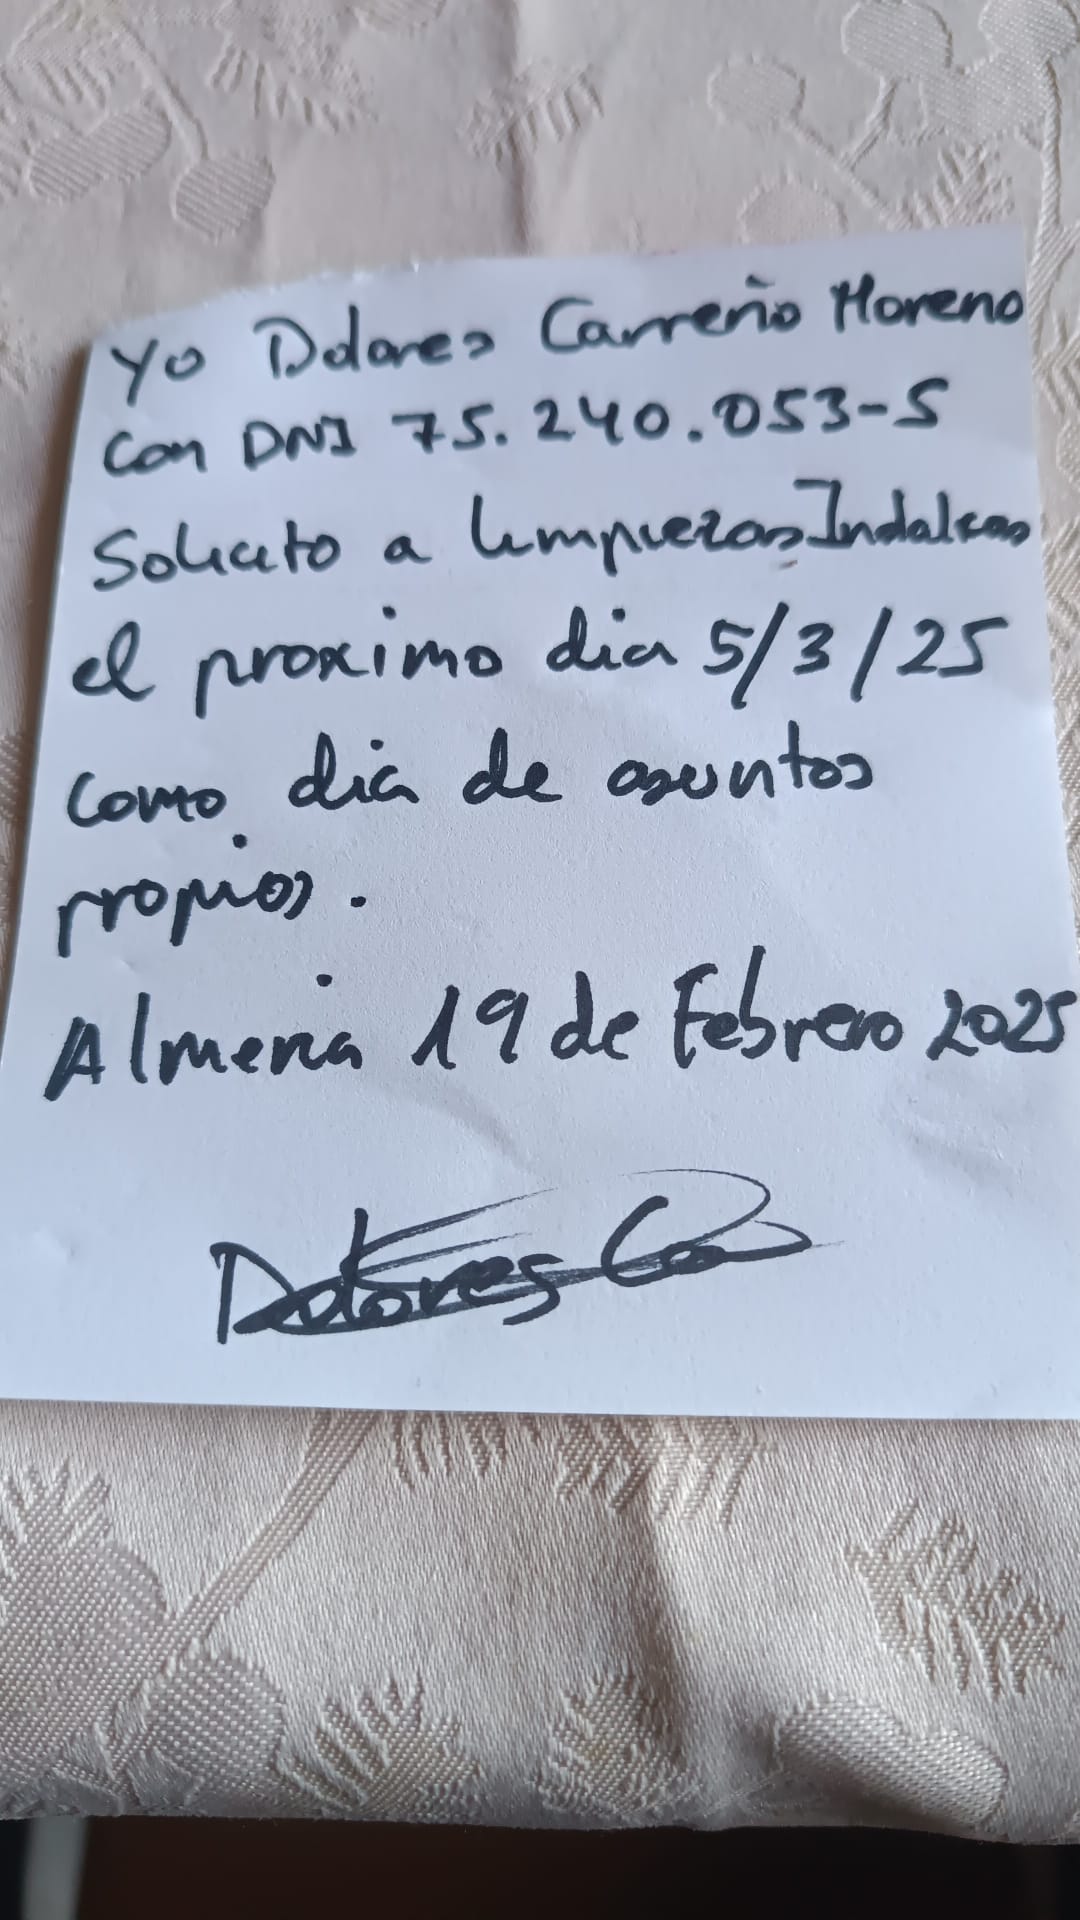 Yo Dolores Carreño Moreno
Con DNI 75.240.053-S
Solicito a limpiezas Indalicas
el proximo dia 5/3/25
como dia de asuntos
propios.
Almeria 19 de Febrero 2025
Dolores Ca